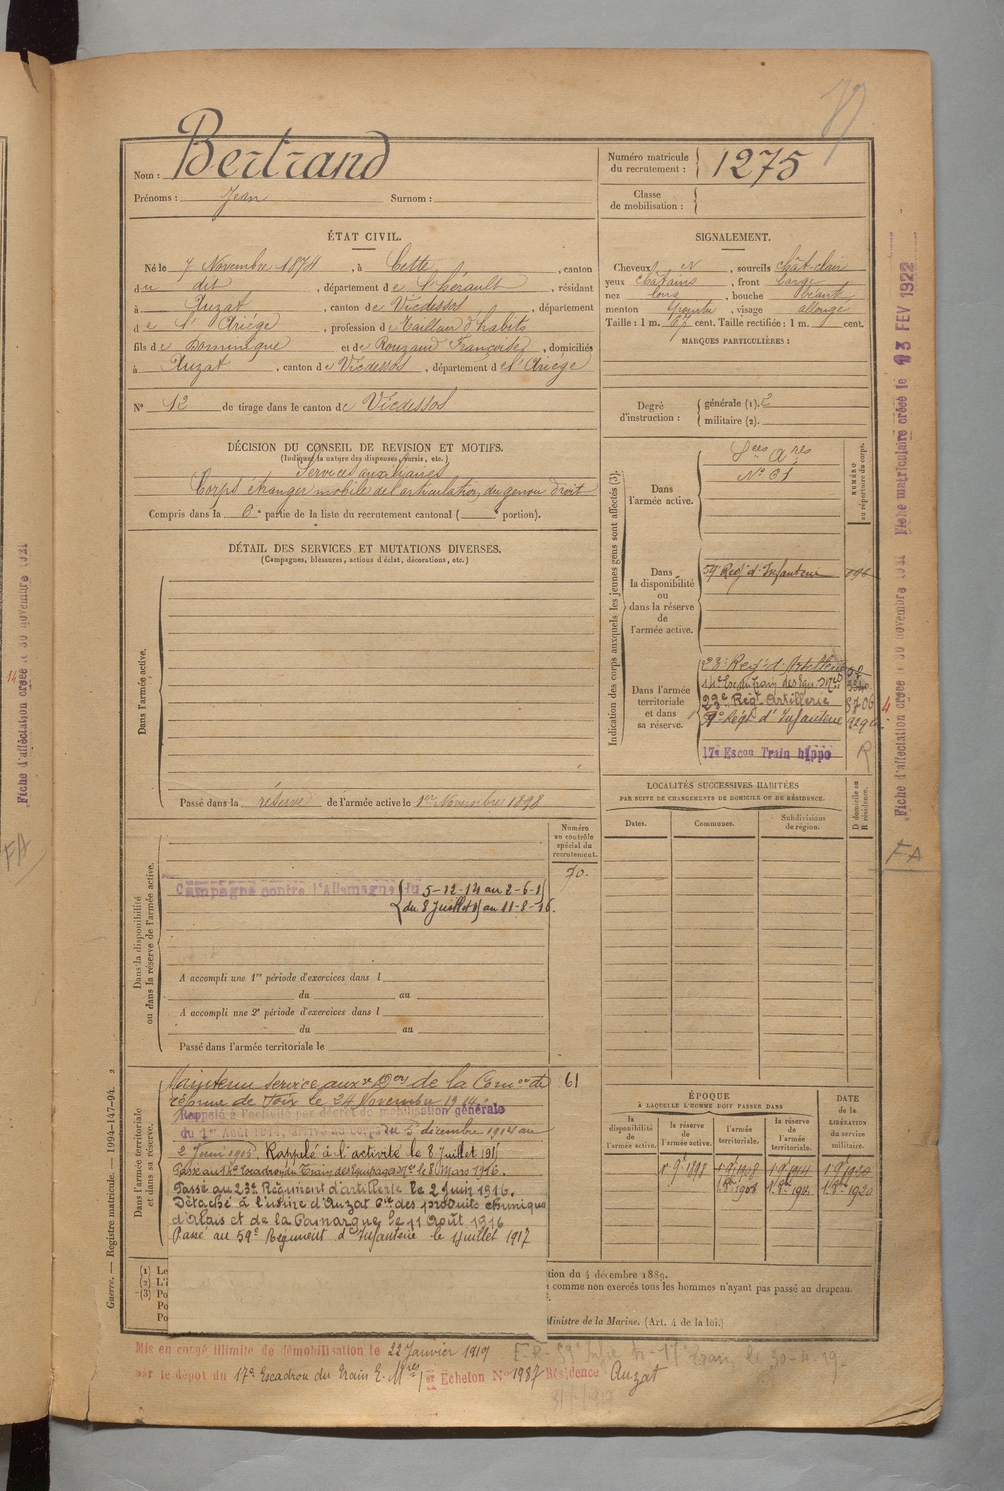 Nom : Bertrand
Prénoms : Jean Surnom :
Numéro matricule du recrutement : 1275
Classe de mobilisation :
ÉTAT CIVIL.
Né le 7 Novembre 1874, à Cette, canton
du dit, département de l'hérault, résidant
à Auzat, canton de Vicdessos, département
de l'Ariége, profession de tailleur d'habits
fils de Dominique et de Rouzaud Françoise, domiciliés
à Auzat, canton de Vicdessos, département de l'Ariége
N° 12 de tirage dans le canton de Vicdessos
SIGNALEMENT.
Cheveux, sourcils chât-clair
yeux chatains, front large
nez long, bouche
menton, visage allongé
Taille : 1 m. 67 cent. Taille rectifiée : 1 m. cent.
MARQUES PARTICULIÈRES :
Degré d'instruction : générale (1). 2
militaire (2).
DÉCISION DU CONSEIL DE REVISION ET MOTIFS.
(Indiquer la nature des dispenses, sursis, etc.)
Services auxiliaires
Corps étranger mobile de l'articulation du genou droit
Compris dans la 6e partie de la liste du recrutement cantonal ( portion).
DÉTAIL DES SERVICES ET MUTATIONS DIVERSES.
(Campagnes, blessures, actions d'éclat, décorations, etc.)
Dans l'armée active.
Passé dans la réserve de l'armée active le 1er Novembre 1898
Indication des corps auxquels les jeunes gens sont affectés (3).
NUMÉRO au répertoire du corps.
Dans l'armée active.
N° 61
Dans la disponibilité ou dans la réserve de l'armée active.
59 Reg. d'Infanterie
Dans l'armée territoriale et dans sa réserve.
23e Reg. d'Artillerie
23e Régt Artillerie
Régt d'Infanterie
17e Escon Train hippo R
LOCALITÉS SUCCESSIVES HABITÉES
PAR SUITE DE CHANGEMENTS DE DOMICILE OU DE RÉSIDENCE.
Dates. Communes. Subdivisions de région.
D domicile ou R résidence.
Dans la disponibilité ou dans la réserve de l'armée active.
Numéro au contrôle spécial du recrutement.
70.
Campagne contre l'Allemagne du 5-12-14 au 2-6-1
du 8 Juillet 15 au 11-8-16.
A accompli une 1re période d'exercices dans l
du au
A accompli une 2e période d'exercices dans l
du au
Passé dans l'armée territoriale le
Dans l'armée territoriale et dans sa réserve.
Maintenu service auxre Don de la Comon de 61
réforme de Foix le 24 Novembre 1914.
Rappelé à l'activité par décret de mobilisation générale
du 1er Août 1914, arrivé au corps du 5 décembre 1914 au
2 Juin 1915. Rappelé à l'activité le 8 Juillet 191
Passé au Escadron du Train des Equipages Mres le 8 Mars 1916.
Passé au 23e Régiment d'artillerie le 2 Juin 1916.
Détaché à l'usine d'Auzat Cie des produits chimiques
d'Alais et de la Camargue le 11 Août 1916
Passé au 59e Régiment d'Infanterie le 1 Juillet 1917
ÉPOQUE
À LAQUELLE L'HOMME DOIT PASSER DANS
la disponibilité de l'armée active. la réserve de l'armée active. l'armée territoriale. la réserve de l'armée territoriale.
DATE de la LIBÉRATION du service militaire.
1er 9e 1898 1er 9e 1908 1er 9e 1914 1er 9e 1920
1908 1914 1920
(1) Le
(2) L'i
(3) Po
Po
Po
tion du 4 décembre 1889.
comme non exercés tous les hommes n'ayant pas passé au drapeau.
Ministre de la Marine. (Art. 4 de la loi.)
Mis en congé illimité de démobilisation le 22 Janvier 1919
par le dépôt du 17e Escadron du Train E. Mres 1er Echelon N° 1987 Résidence Auzat
Guerre. — Registre matricule. — 1994-147-94. 2
Fiche d'affectation créée le 30 novembre 1921
Fiche matriculaire créée le 13 FEV 1922
FA
Fiche d'affectation créée le 30 novembre 1921
FA